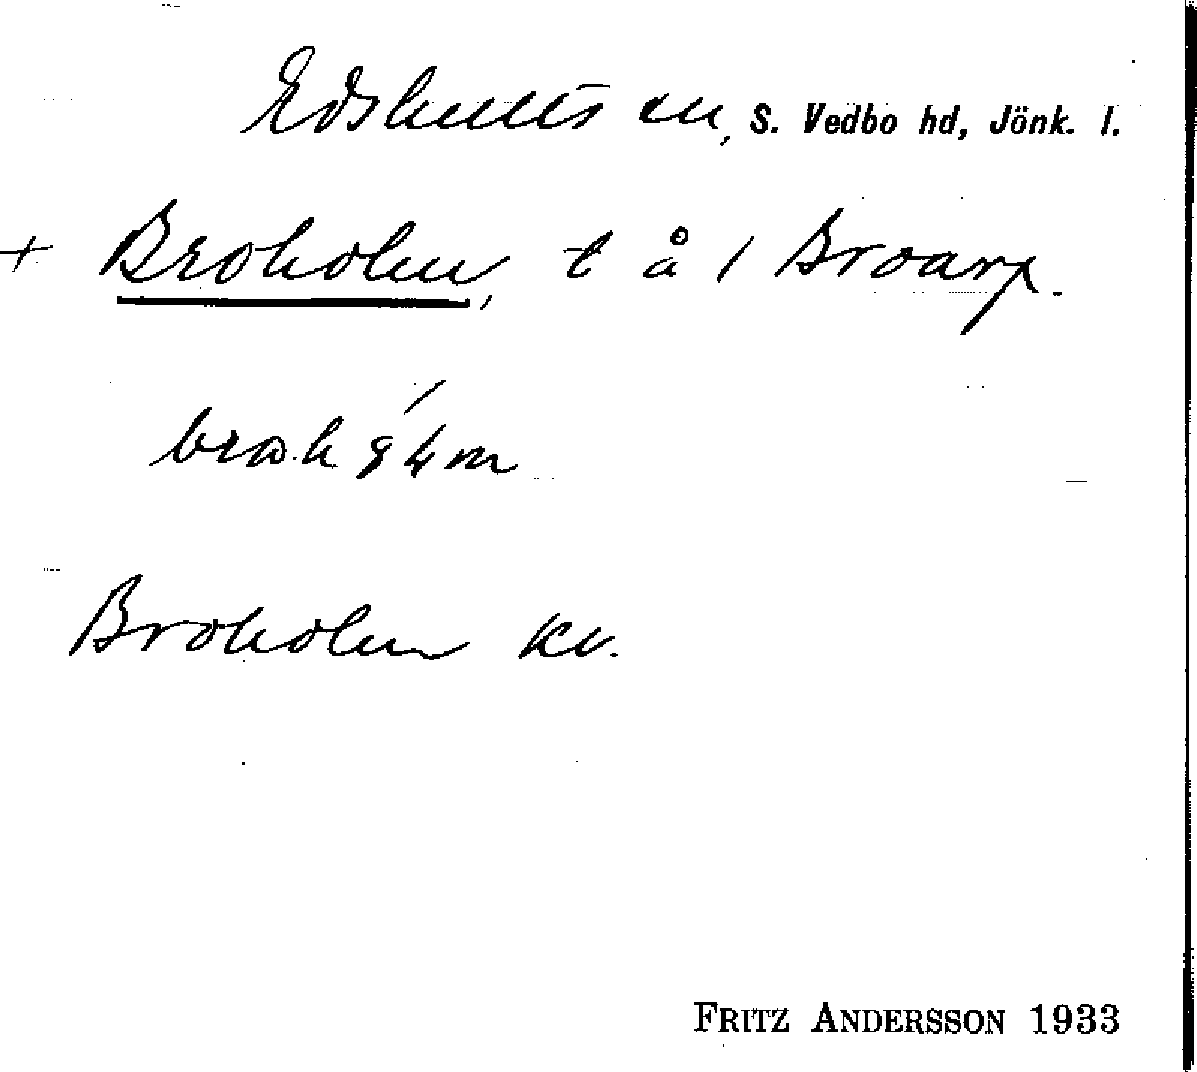 Edshults sn, S. Vedbo hd, Jönk. l.
+ Broholm, t å / Broarp.
Broholm kv.
FRITZ ANDERSSON 1933